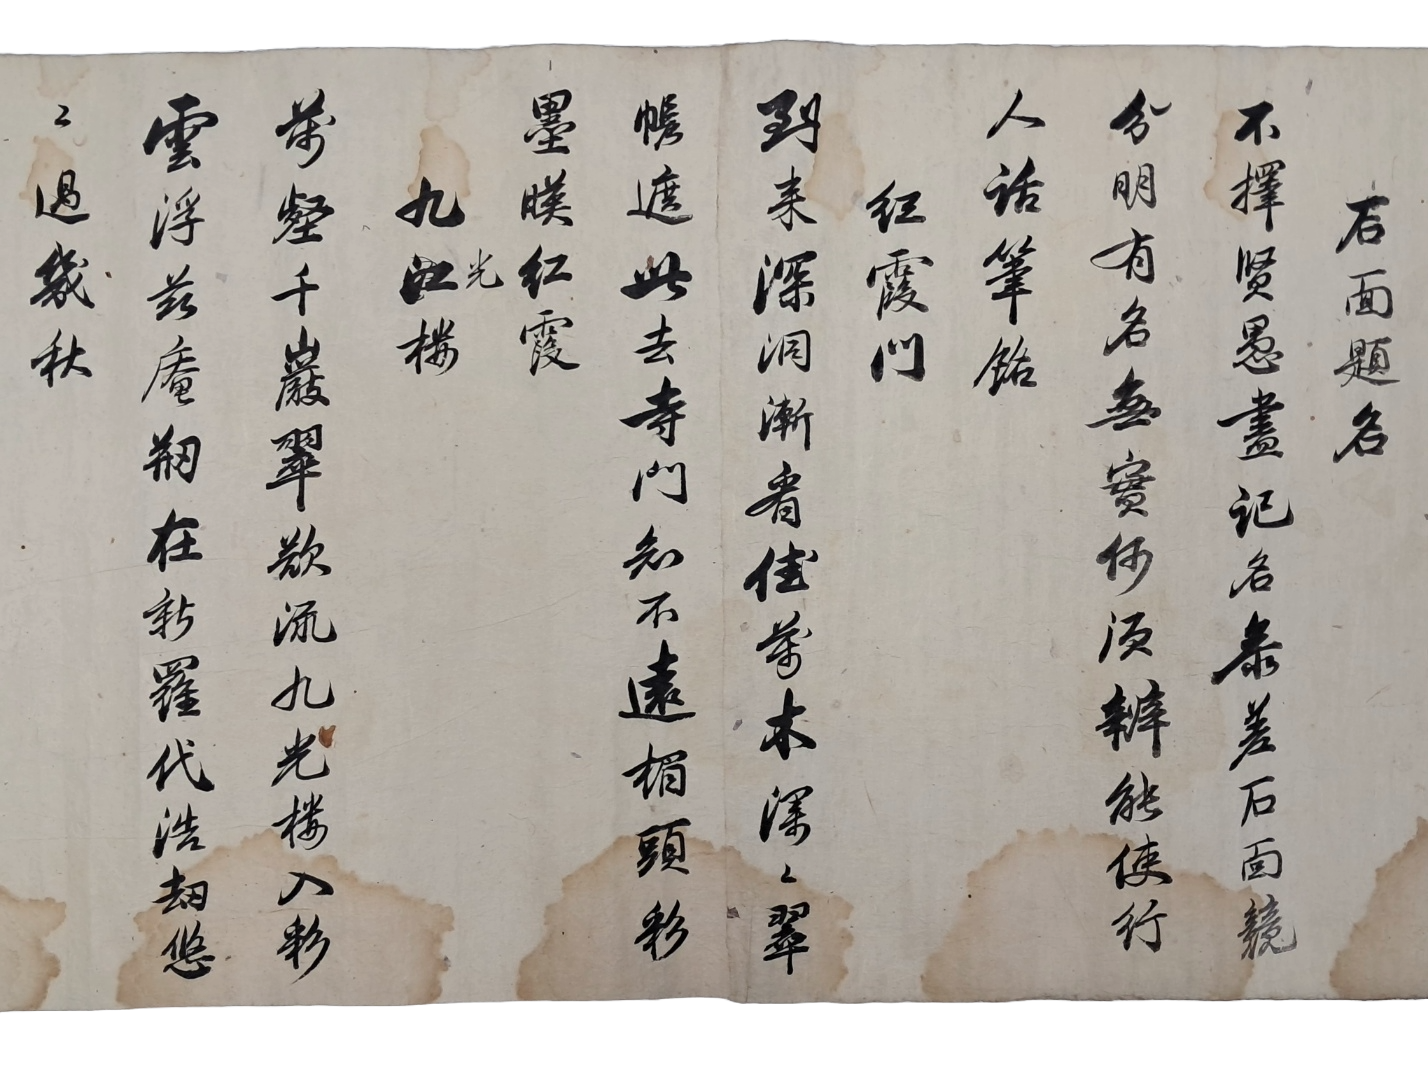 石面題名
不擇賢愚盡記名參差石面競
分明有名無實何須辨能使行
人話筆銘
紅霞門
到来深洞漸看佳萬木深〻翠
幨遮此去寺門知不遠楣頭彩
墨暎紅霞
九江樓
光
萬壑千巖翠欲流九光樓入彩
雲浮茲庵刱在新羅代浩劫悠
〻過幾秋